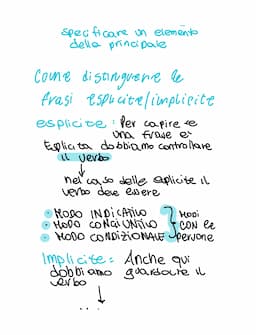 specificare un elemento
della principale
Come distinguere le
frasi esplicite/implicite
esplicite: Per capire se
una frase è
Esplicita dobbiamo controllare
il verbo
↓
nel caso delle esplicite il
verbo deve essere
• MODO INDICATIVO
• MODO CONGIUNTIVO
• MODO CONDIZIONALE
} MODI
CON le
persone
Implicite: Anche qui
dobbiamo guardare il
verbo
↓
...